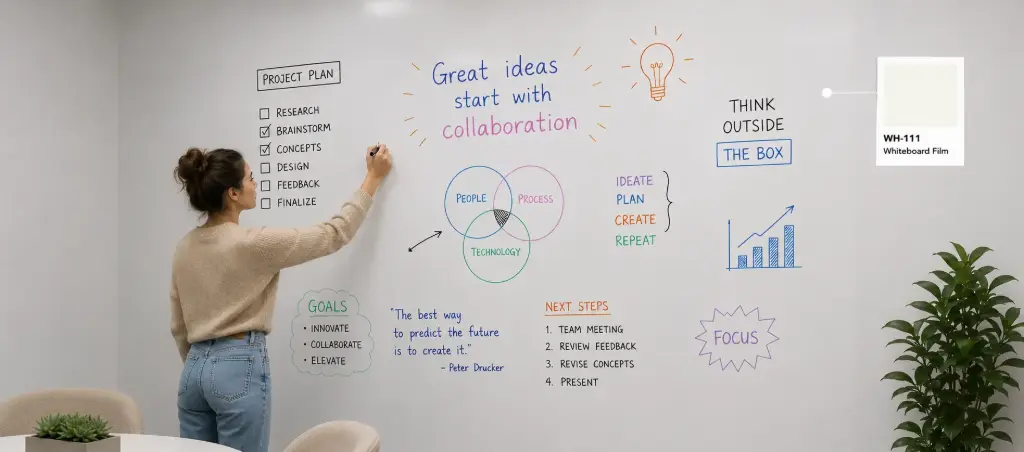 PROJECT PLAN
RESEARCH
BRAINSTORM
CONCEPTS
DESIGN
FEEDBACK
FINALIZE
Great ideas
start with
collaboration
PEOPLE
PROCESS
TECHNOLOGY
IDEATE
PLAN
CREATE
REPEAT
THINK
OUTSIDE
THE BOX
WH-111
Whiteboard Film
GOALS
• INNOVATE
• COLLABORATE
• ELEVATE
"The best way
to predict the future
is to create it."
- Peter Drucker
NEXT STEPS
1. TEAM MEETING
2. REVIEW FEEDBACK
3. REVISE CONCEPTS
4. PRESENT
FOCUS